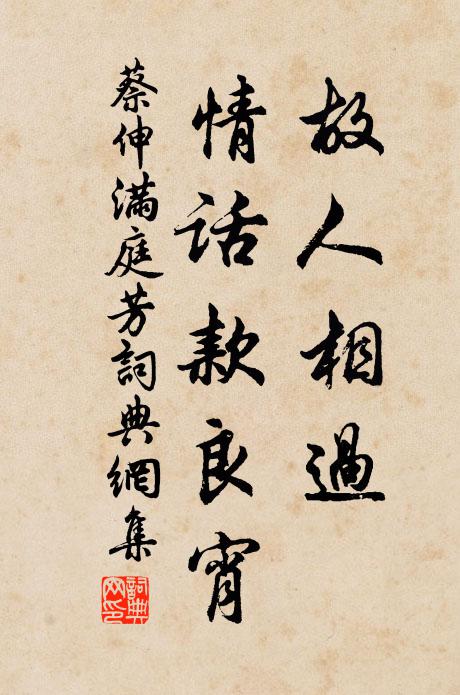 故人相過
情話款良宵
蔡伸滿庭芳詞典網集
詞典網印